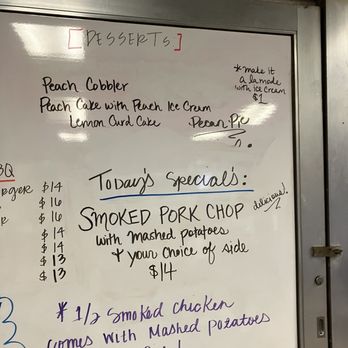 [DESSERTS]
Peach Cobbler
Peach Cake with Peach Ice Cream
Lemon Curd Cake
Pecan Pie
*make it
a la mode
with ice cream
$1
BQ
$14
$16
$16
$14
$14
$13
$13
Today's Specials:
SMOKED PORK CHOP
with mashed potatoes
+ your choice of side
$14
delicious!
* 1/2 Smoked chicken
comes with Mashed potatoes